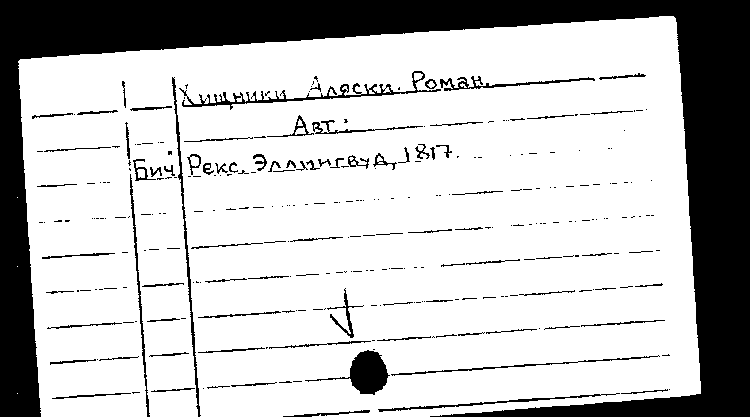 Хищники Аляски. Роман.
Авт.:
Бич, Рекс. Эллингвуд, 1817.